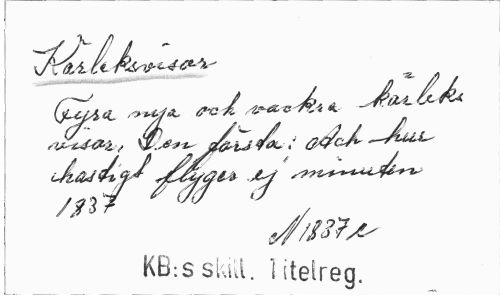 Kärleksvisor
Fyra nya och vackra kärleks
visor, Den första: Ach hur
hastigt flyger ej minuten
1837
N 1837 e
KB:s skill. Titelreg.